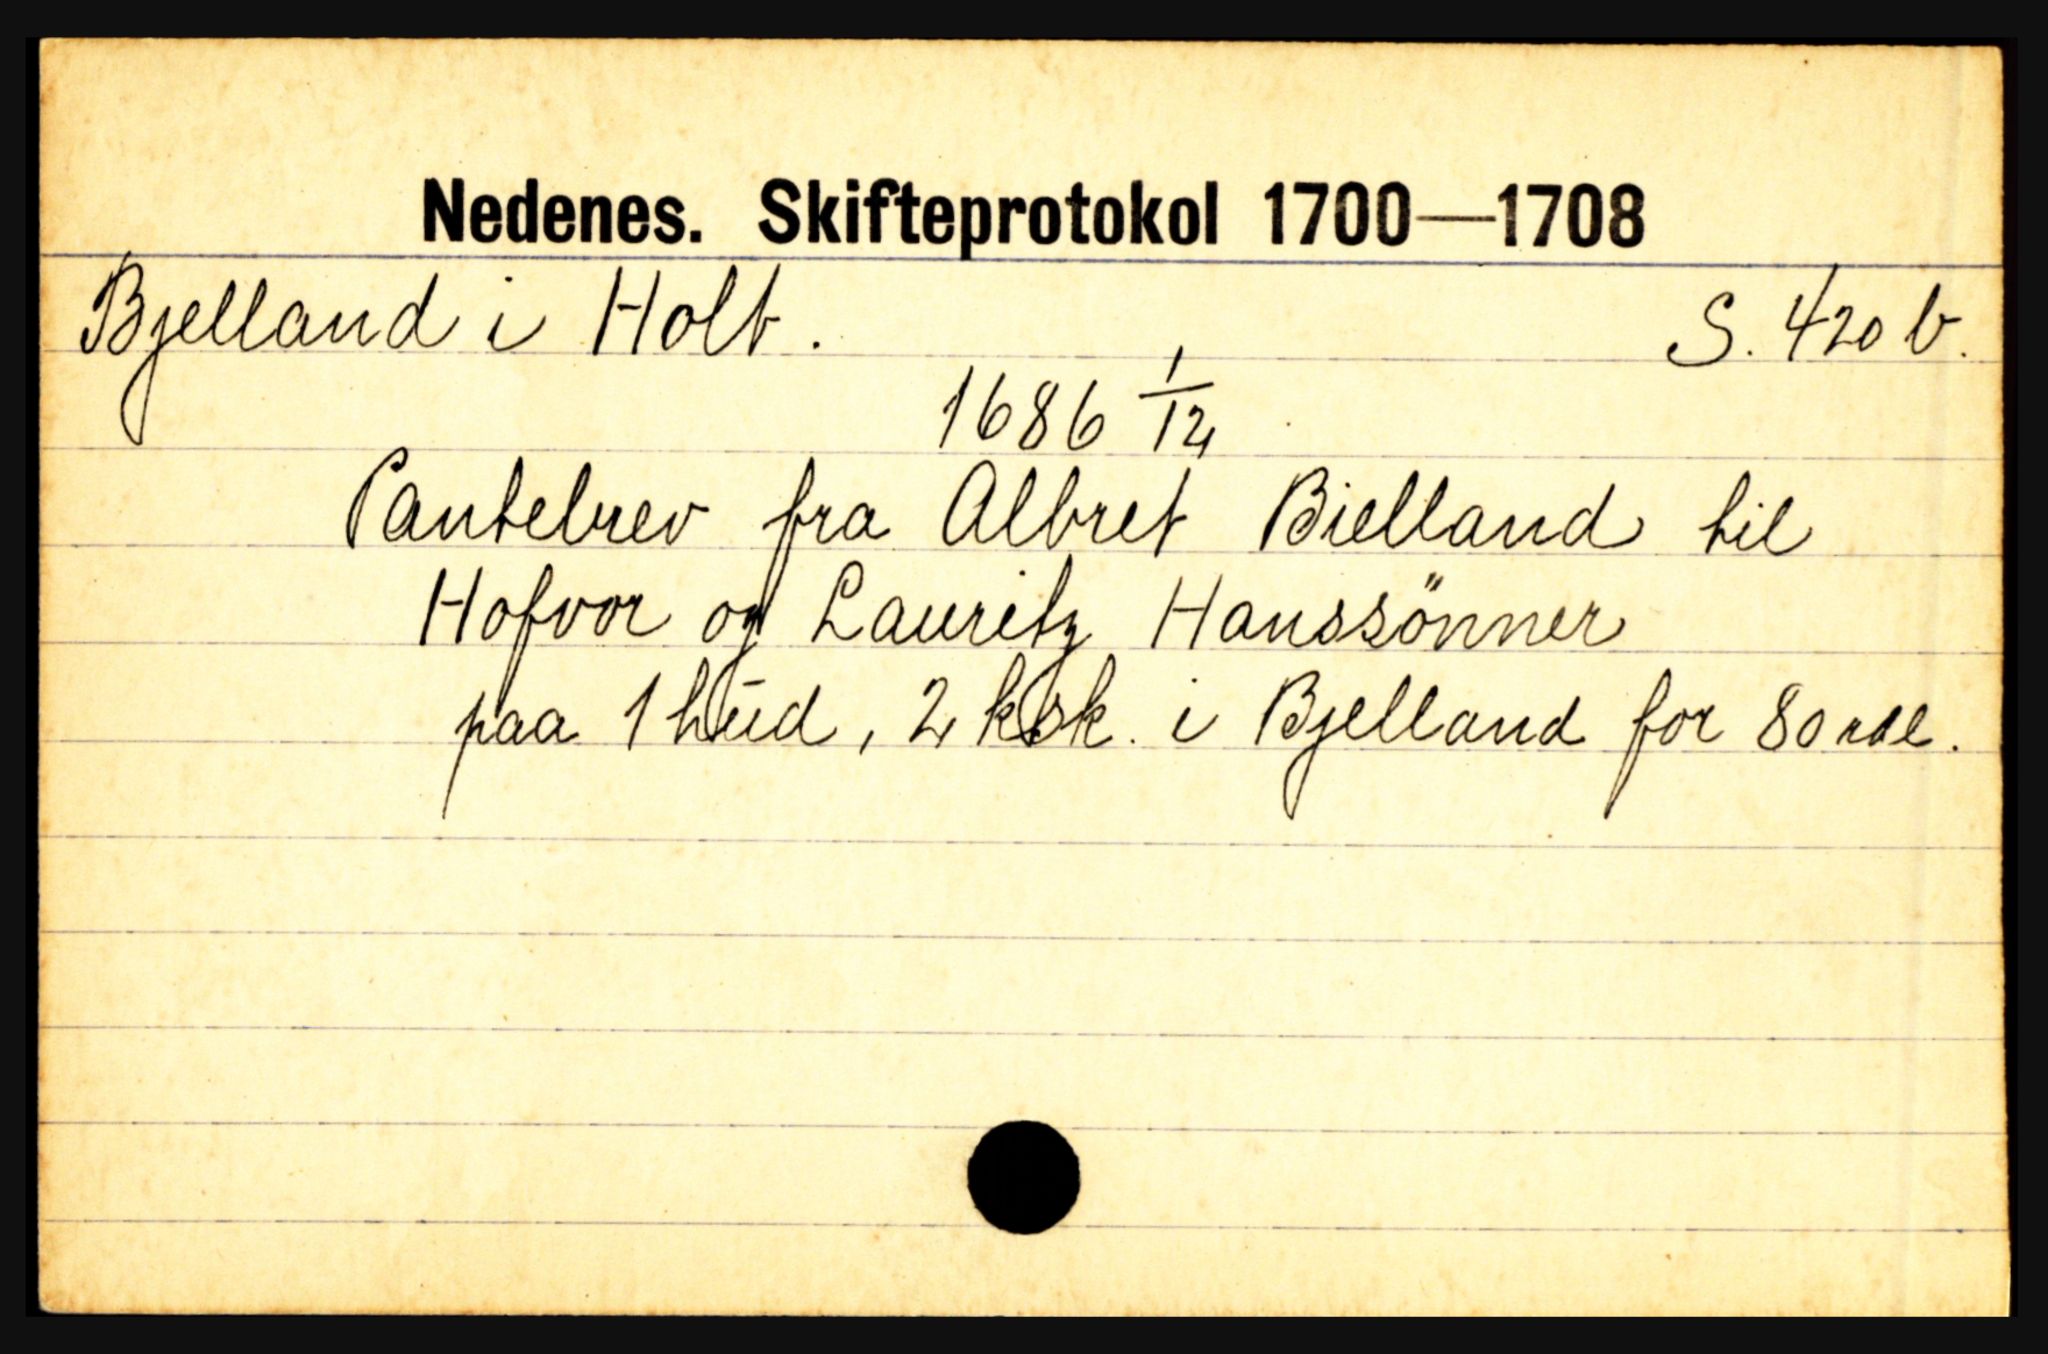 Nedenes. Skifteprotokol 1700—1708
Bjelland i Holt. S. 420 b.
1686 1/12
Pantebrev fra Albret Bielland til
Hofvor og Lauritz Hanssönner
paa 1 hud, 2 ksk. i Bjelland for 80 rdl.